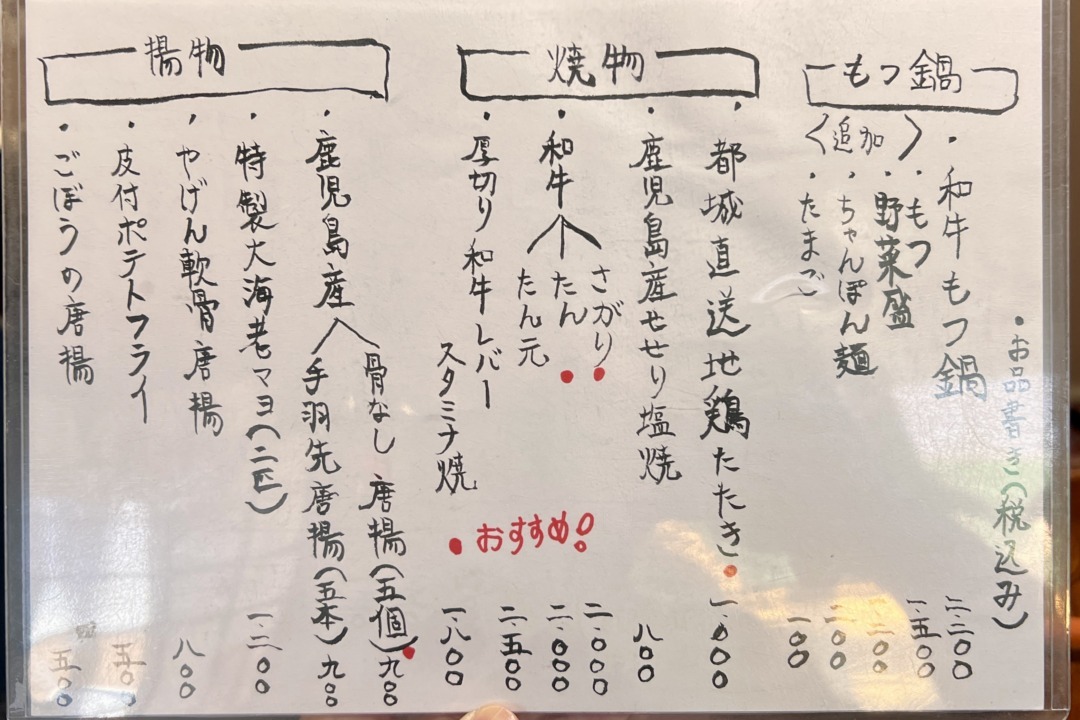 ・お品書き(税込み)
もつ鍋
・和牛もつ鍋 二.二〇〇
〈追加〉
・もつ 一.五〇〇
・野菜盛
・ちゃんぽん麺
・たまご 一〇〇
焼物
・都城直送地鶏たたき 一.〇〇〇
・鹿児島産せせり塩焼 八〇〇
・和牛
さがり 二.〇〇〇
たん 二.〇〇〇
たん元 二.五〇〇
・厚切り和牛レバー
スタミナ焼 一.八〇〇
●おすすめ!
揚物
・鹿児島産
骨なし 唐揚(五個) 九〇〇
手羽先唐揚(五本) 九〇〇
・特製大海老マヨ(二匹) 一.二〇〇
・やげん軟骨唐揚 八〇〇
・皮付ポテトフライ 五〇〇
・ごぼうの唐揚 五〇〇